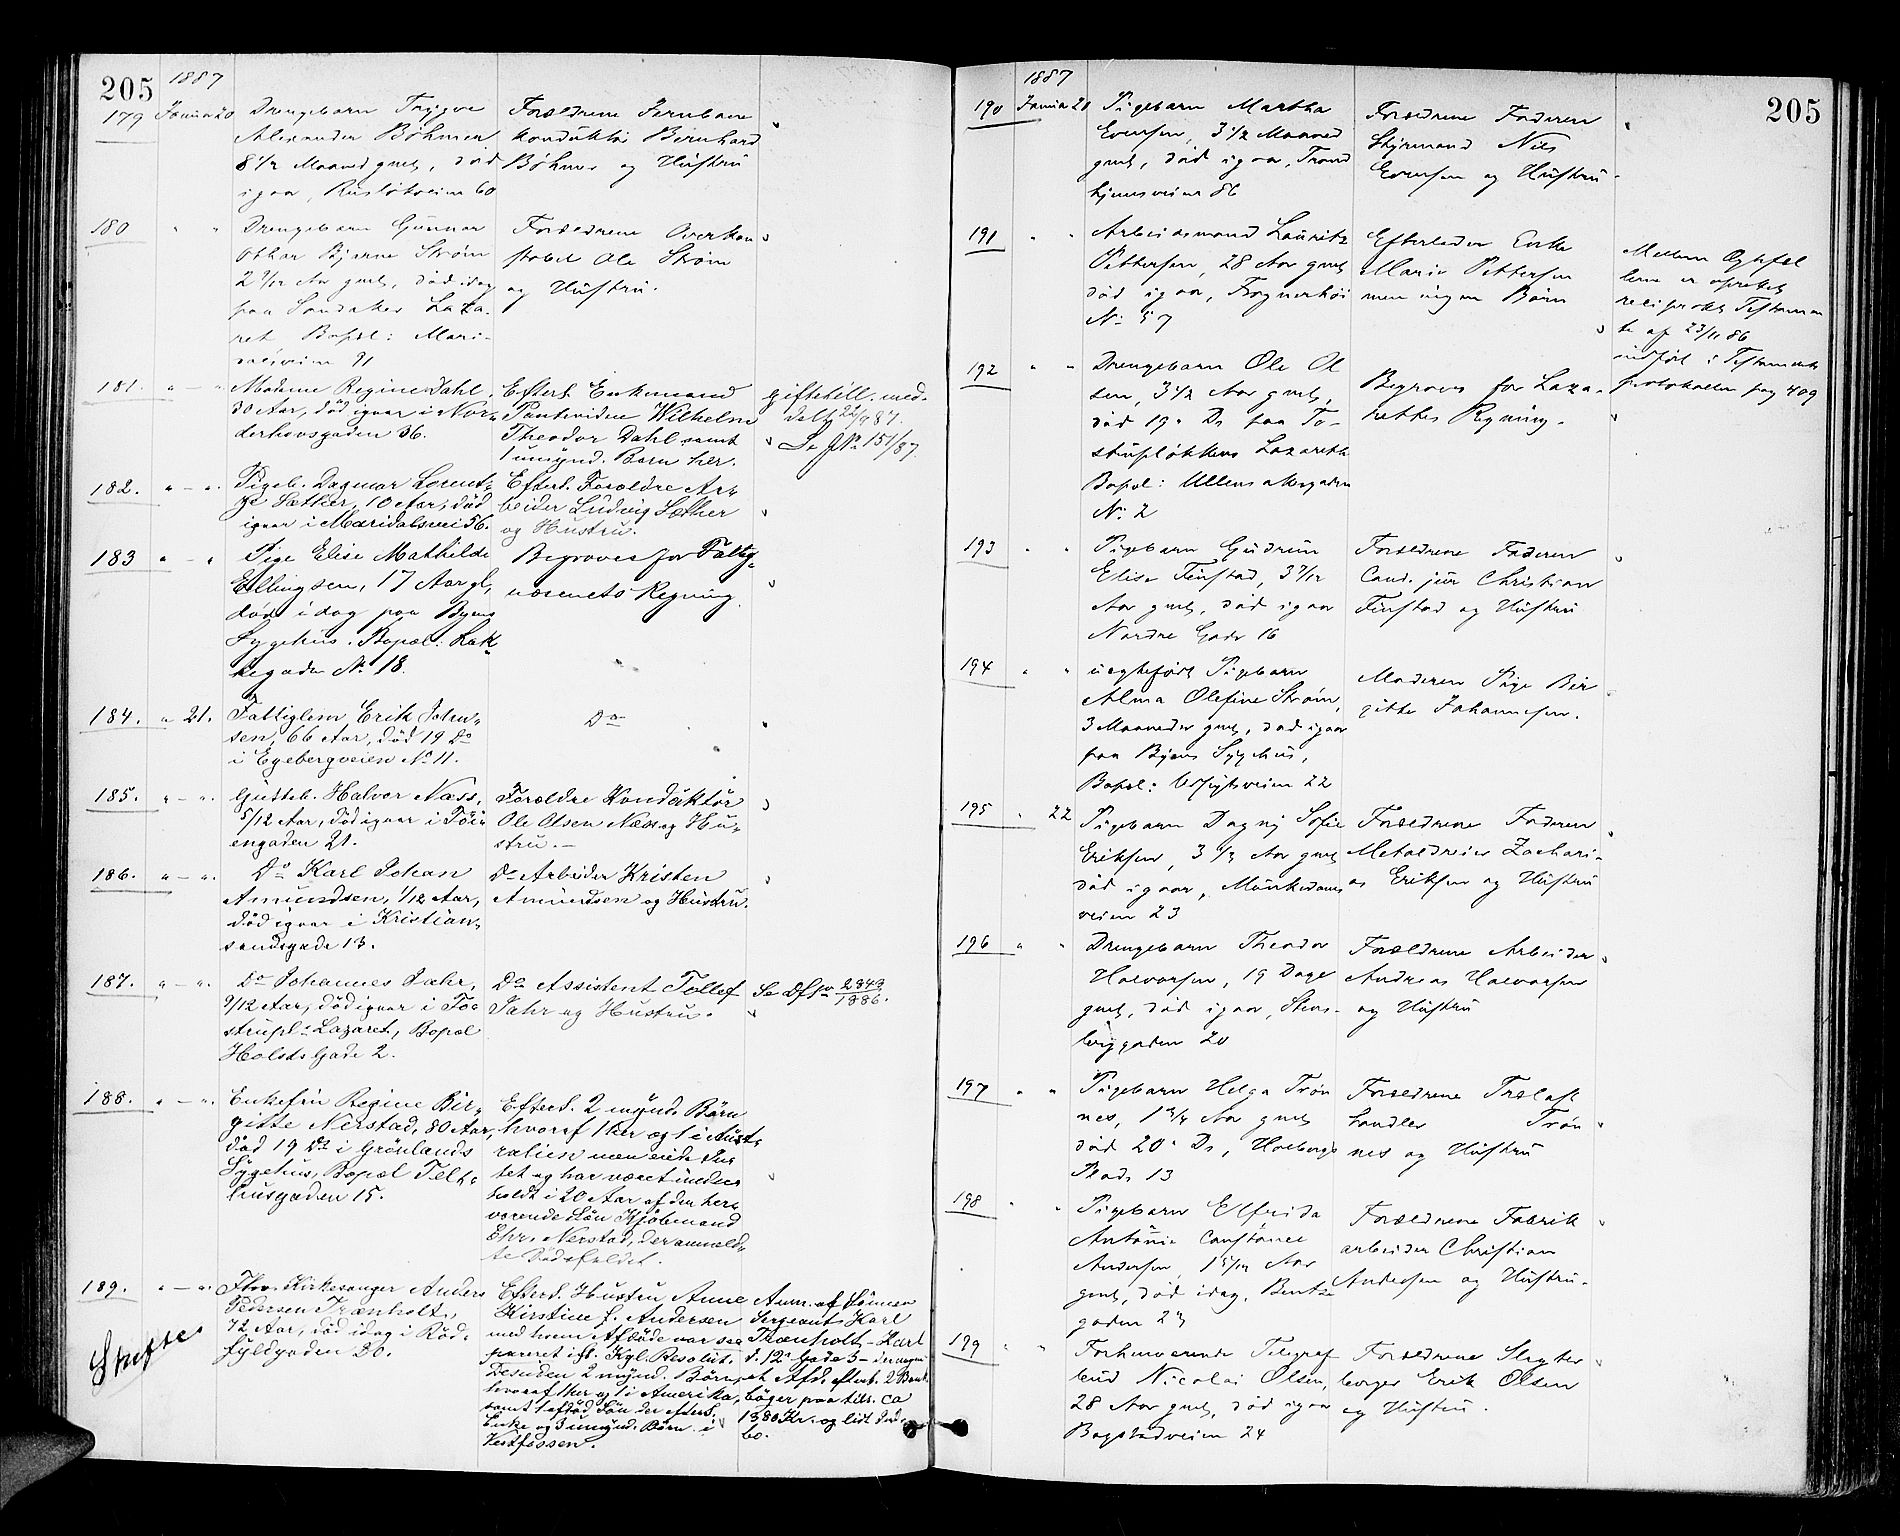 205
1887
179 Januar 20 Drengebarn Trygve
Alexander Böhmer
8 1/2 Maaned gml, død
igaar, Ruseløkveien 60
Forældrene Jernbane
konduktør Bernhard
Böhmer og Hustru
180 " " Drengebarn Gunnar
Othar Bjarne Strøm
2 7/12 Aar gml, død idag
paa Sandaker Laza-
ret, Bopæl: Mari-
dalsveien 91
Forældrene Overkon
stabel Ole Strøm
og Hustru.
181. " — " Madame Regine Dahl,
30 Aar, död igaar i Nor-
derhovsgaden 36.
Efterl. Enkemand
Theodor Dahl samt
1 umynd. Barn her.
Se
182. " — " Pigeb. Dagmar Lorent-
ze Sæther, 10 Aar, död
igaar i Maridalsvei 56.
Efterl. Forældre Ar-
beider Ludvig Sæther
og Hustru.
183 " — " Pige Elise Mathilde
Ellingsen, 17 Aar gl,
död i dag paa Byens
Sygehus. Bopæl: Lak-
kegaden No 18.
Begraves for Fattig-
væsenets Regning.
184. " 21. Fattiglem Erik John-
sen, 66 Aar, död 19 Ds
i Egebergveien No 11.
Do
185. " — " Gutteb. Halvor Næss,
5/12 Aar, död igaar i Töi-
engaden 21.
Forældre Konduktör
Ole Olsen Næss og Hu-
stru. —
186. " — " Do Karl Johan
Amundsen, 1/12 Aar,
död igaar i Kristian-
sandsgade 13.
Do Arbeider Kristen
Amundsen og Hustru.
187. " — " Do Johannes Jahr,
9/12 Aar, död igaar i To-
strupl. Lazaret, Bopæl
Holsts Gade 2.
Do Assistent Tollef
Jahr og Hustru.
188. " — " Enkefru Regine Bir-
gitte Nerstad, 80 Aar,
död 19 Ds i Grönlands
Sygehus, Bopæl Telt-
husgaden 15.
Efterl. 2 mynd. Börn
hvoraf 1 her og 1 i Aust-
ralien men
tet og har været under-
holdt i 20 Aar af den her-
værende Sön Kjöbmand
Chr. Nerstad, der anmeld-
te Dödsfaldet.
189. " — " Fhv. Kirkesanger Anders
Pedersen Trænholt,
72 Aar, död idag i Röd-
fyldgaden 20.
Skifte
Efterl. Hustru Anne
Kirstine f. Andersen
med hvem Afdöde var se-
pareret ifl. Kgl. Resolut.
Desuden 2 mynd. Börn,
hvoraf 1 her og 1 i Amerika,
samt 1 afdöd Sön der efterl.
Enke og 3 umynd. Börn i
Vestfossen.
Anm. af Sönnen
Sergeant Karl
Trænholt
at Afd. efterl. 2 Bank-
böger paa tils. ca
1380 Kr. og lidt Ind-
bo.
205
1887
190 Januar 21 Pigebarn Martha
Evensen, 3 1/2 Maaned
gml, død igaar, Trond
hjemsveien 86
Forældrene Faderen
Styrmand Nils
Evensen og Hustru.
191 " " Arbeidsmand Lauritz
Pettersen, 28 Aar gml
død igaar, Frognerhøi
No 57
Efterlader Enke
Marie Pettersen
men ingen Børn
Mellem Ægtefol
kene er oprettet
reciprokt Testamen
te af 23/11 86
indført i Testaments
protokollen pag 409
192 " " Drengebarn Ole Ol
sen, 3 1/2 Aar gml,
død 19. Ds paa To-
strupløkkens Lazareth
Bopæl: Ullevaalsgaden
No 2
Begraves for Laza-
rettes Regning.
193 " " Pigebarn Gudrun
Elise Finstad, 3 7/12
Aar gml, død igaar
Nordre Gade 16
Forældrene Faderen
Cand. jur Christian
Finstad og Hustru
194 " " uægtefødt Pigebarn
Alma Olefine Strøm,
3 Maaneder gml, død igaar
paa Byens Sygehus,
Bopæl: Udsigtsveien 22
Moderen Pige Bir
gitte Johannesen.
195 " 22 Pigebarn Dagny Sofie
Eriksen, 3 1/3 Aar gml
død igaar, Munkedams
veien 23
Forældrene Faderen
Metaldreier Zachari-
as Eriksen og Hustru
196 " " Drengebarn Theodor
Halvorsen, 19 Dage
gml, død igaar, Stens-
berggaden 20
Forældrene Arbeider
Andreas Halvorsen
og Hustru
197 " " Pigebarn Helga Trøn
nes, 1 3/4 Aar gml
død 20. Ds, Holbergs
Plads 13
Forældrene Trælast
handler Trøn
nes og Hustru
198 " " Pigebarn Elfrida
Antonie Constance
Andersen, 1 5/12 Aar
gml, død idag, Bentse
gaden 23
Forældrene Fabrik
arbeider Christian
Andersen og Hustru.
199 " " Forhenværende Telegraf
bud Nicolai Olsen,
28 Aar gml, død igaar
Bogstadveien 24
Forældrene Slagter
borger Erik Olsen
og Hustru.